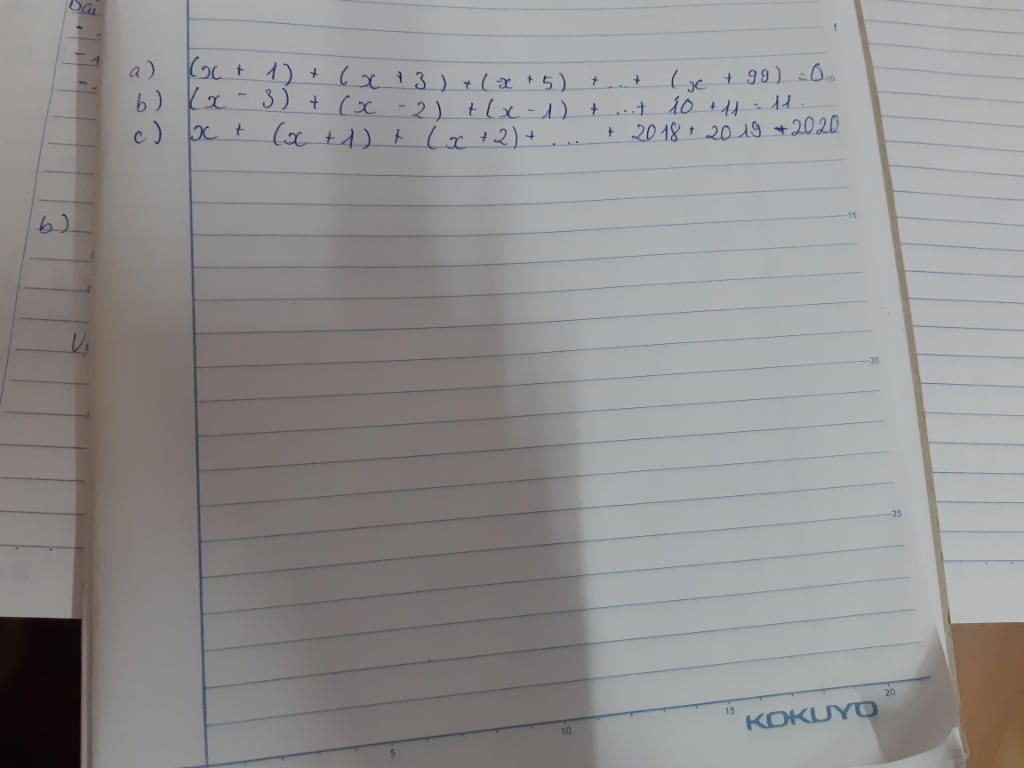 Bài
a) (x + 1) + (x + 3) + (x + 5) + ... + (x + 99) = 0
b) (x - 3) + (x - 2) + (x - 1) + ... + 10 + 11 = 11.
c) x + (x + 1) + (x + 2) + ... + 2018 + 2019 + 2020
b)
15
20
25
5 10 15 20
KOKUYO